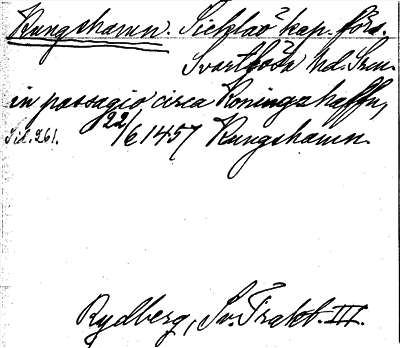 Kungshamn. Sicklaö kap. förs.
Svartlösa hd. Sthm.
in passagio circa Koningxhaffn,
22/6 1457 Kungshamn.
Sid. 261.
Rydberg, Sv. Trakt. III.